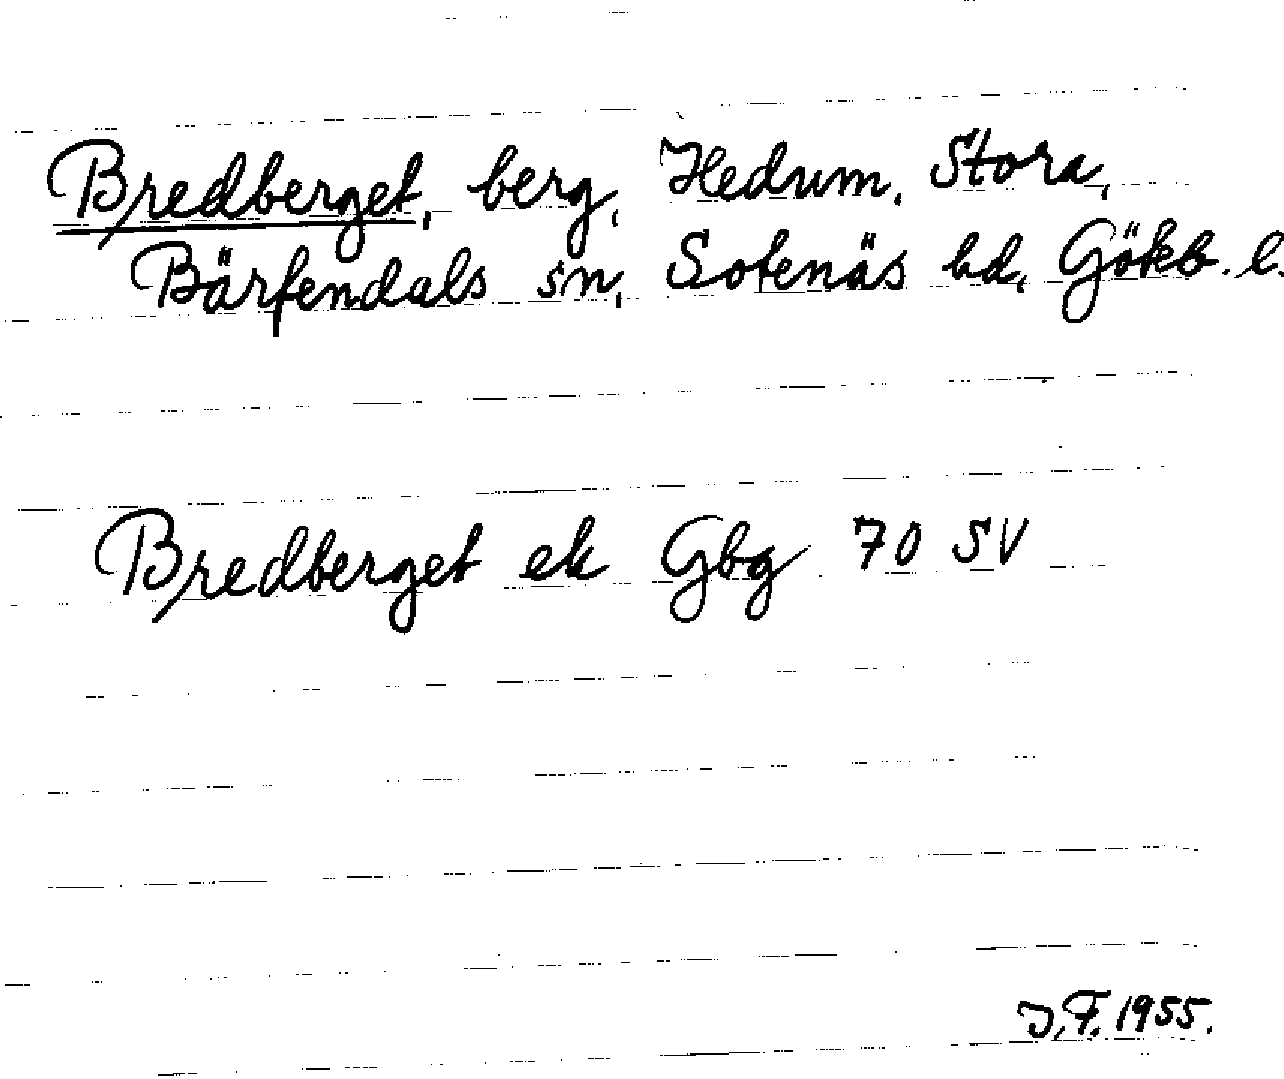 Bredberget, berg, Hedum, Stora,
Bärfendals sn, Sotenäs hd, Gökb. l.
Bredberget ek Gbg 70 SV
J.F. 1955.